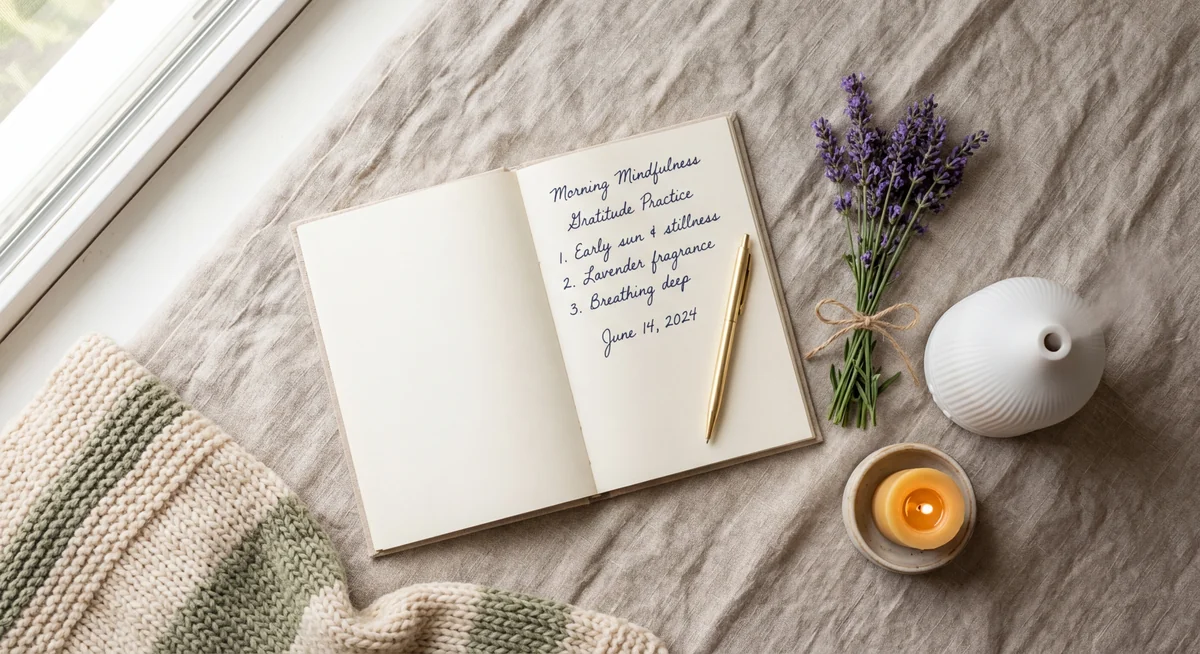 Morning Mindfulness
Gratitude Practice
1. Early sun & stillness
2. Lavender fragrance
3. Breathing deep
June 14, 2024